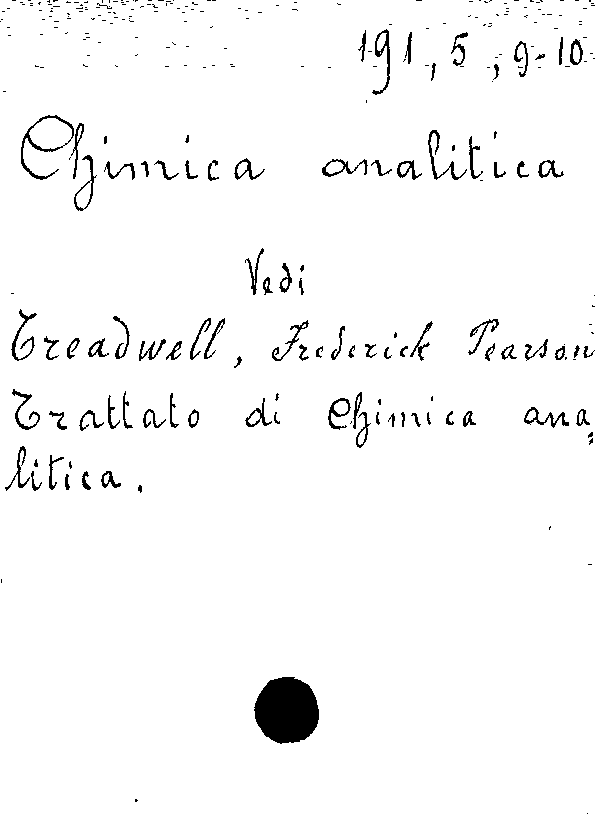 191, 5, 9-10
Chimica analitica
Vedi
Treadwell, Frederick Pearson
Trattato di Chimica ana=
litica.